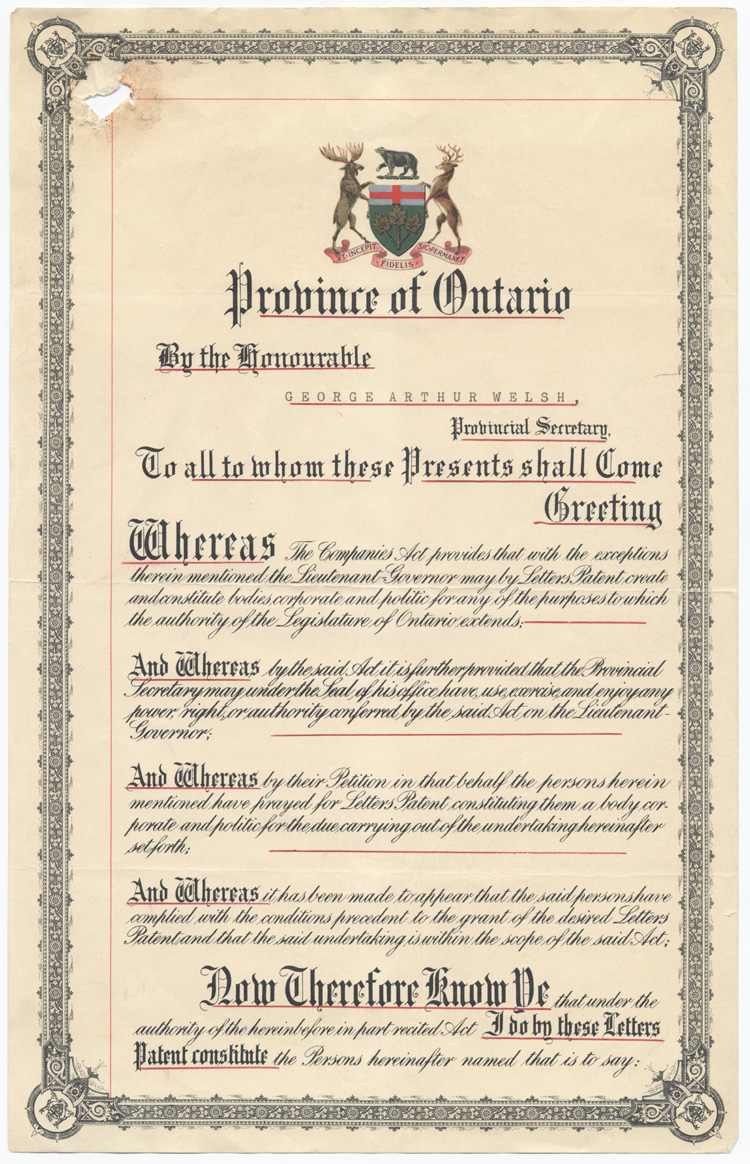 VT·INCEPIT FIDELIS SIC·PERMANET
Province of Ontario
By the Honourable
GEORGE ARTHUR WELSH,
Provincial Secretary,
To all to whom these Presents shall Come
Greeting
Whereas The Companies Act provides that with the exceptions
therein mentioned the Lieutenant-Governor may by Letters Patent create
and constitute bodies corporate and politic for any of the purposes to which
the authority of the Legislature of Ontario extends;
And Whereas by the said Act it is further provided that the Provincial
Secretary may under the Seal of his office have, use, exercise and enjoy any
power, right, or authority conferred by the said Act on the Lieutenant-
Governor;
And Whereas by their Petition in that behalf the persons herein
mentioned have prayed for Letters Patent constituting them a body cor-
porate and politic for the due carrying out of the undertaking hereinafter
set forth;
And Whereas it has been made to appear that the said persons have
complied with the conditions precedent to the grant of the desired Letters
Patent and that the said undertaking is within the scope of the said Act;
Now Therefore Know Ye that under the
authority of the hereinbefore in part recited Act I do by these Letters
Patent constitute the Persons hereinafter named that is to say: